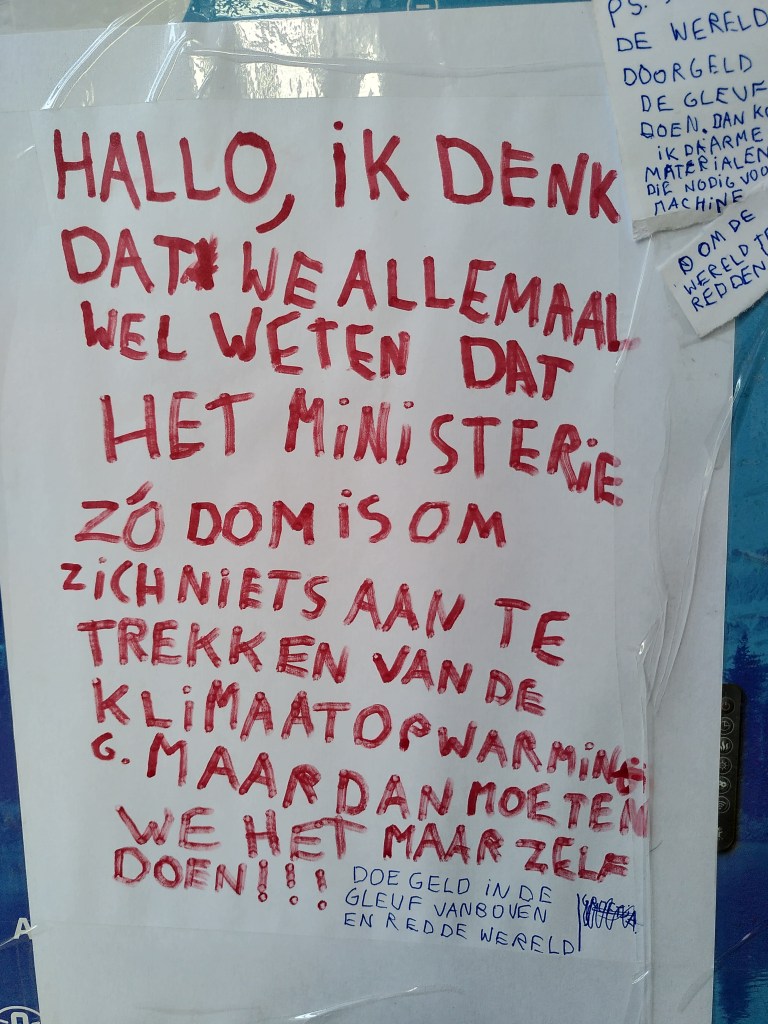 HALLO, iK DENK
DAT WE ALLEMAAL
WEL WETEN DAT
HET MiNiSTERiE
ZÓ DOM iS OM
ZiCH NiETS AAN TE
TREKKEN VAN DE
KLiMAATOPWARMiN
G. MAAR DAN MOETEN
WE HET MAAR ZELF
DOEN!!!
DOE GELD iN DE
GLEUF VANBOVEN
EN RED DE WERELD
PS.
DE WERELD
DOOR GELD
DE GLEUF
DOEN. DAN KO
iK DAARME
MATERiALEN
DiE NODiG VOO
MACHiNE
OM DE
WERELD TE
REDDEN!
A